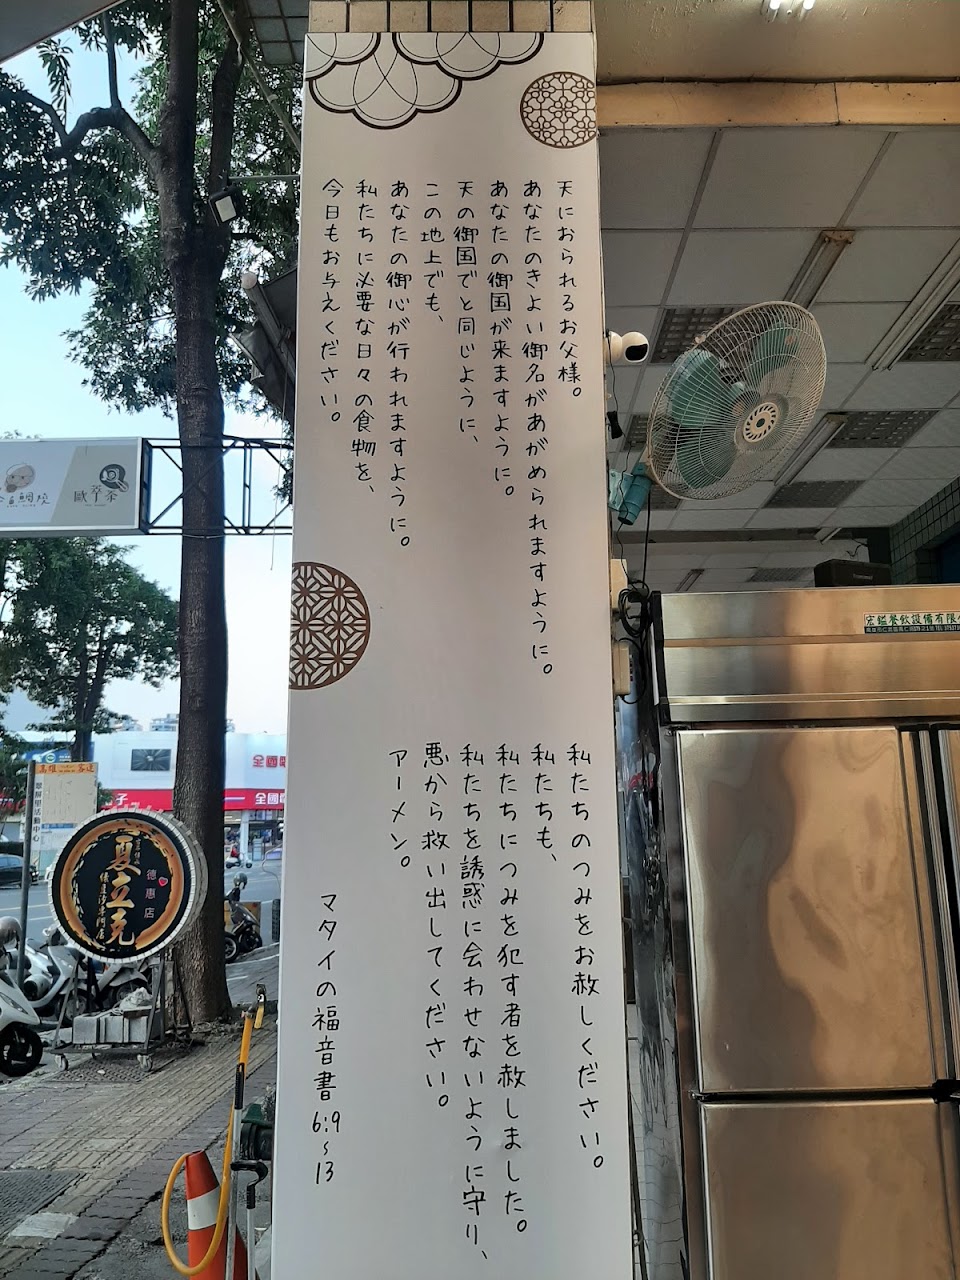 天におられるお父様。
あなたのきよい御名があがめられますように。
あなたの御国が来ますように。
天の御国でと同じように、
この地上でも、
あなたの御心が行われますように。
私たちに必要な日々の食物を、
今日もお与えください。
私たちのつみをお赦しください。
私たちも、
私たちにつみを犯す者を赦しました。
私たちを誘惑に会わせないように守り、
悪から救い出してください。
アーメン。
マタイの福音書6:9~13
夏立克
德惠店
高雄客運
全國
全國